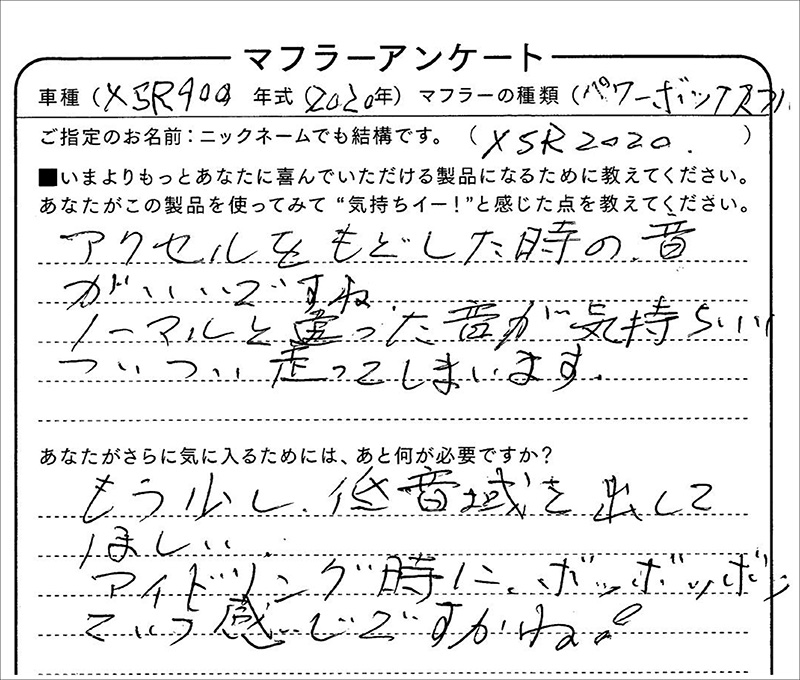 マフラーアンケート
車種（XSR900 年式（2020年）マフラーの種類（パワーボックスフル
ご指定のお名前：ニックネームでも結構です。（XSR2020. ）
■いまよりもっとあなたに喜んでいただける製品になるために教えてください。
あなたがこの製品を使ってみて“気持ちイー！”と感じた点を教えてください。
アクセルをもどした時の、音
がいいですね
ノーマルと違った音が気持ちいい
ついつい走ってしまいます。
あなたがさらに気に入るためには、あと何が必要ですか？
もう少し、低音域を出して
ほしい、
アイドリング時に、ボッボッボッ
ていう感じですかね。